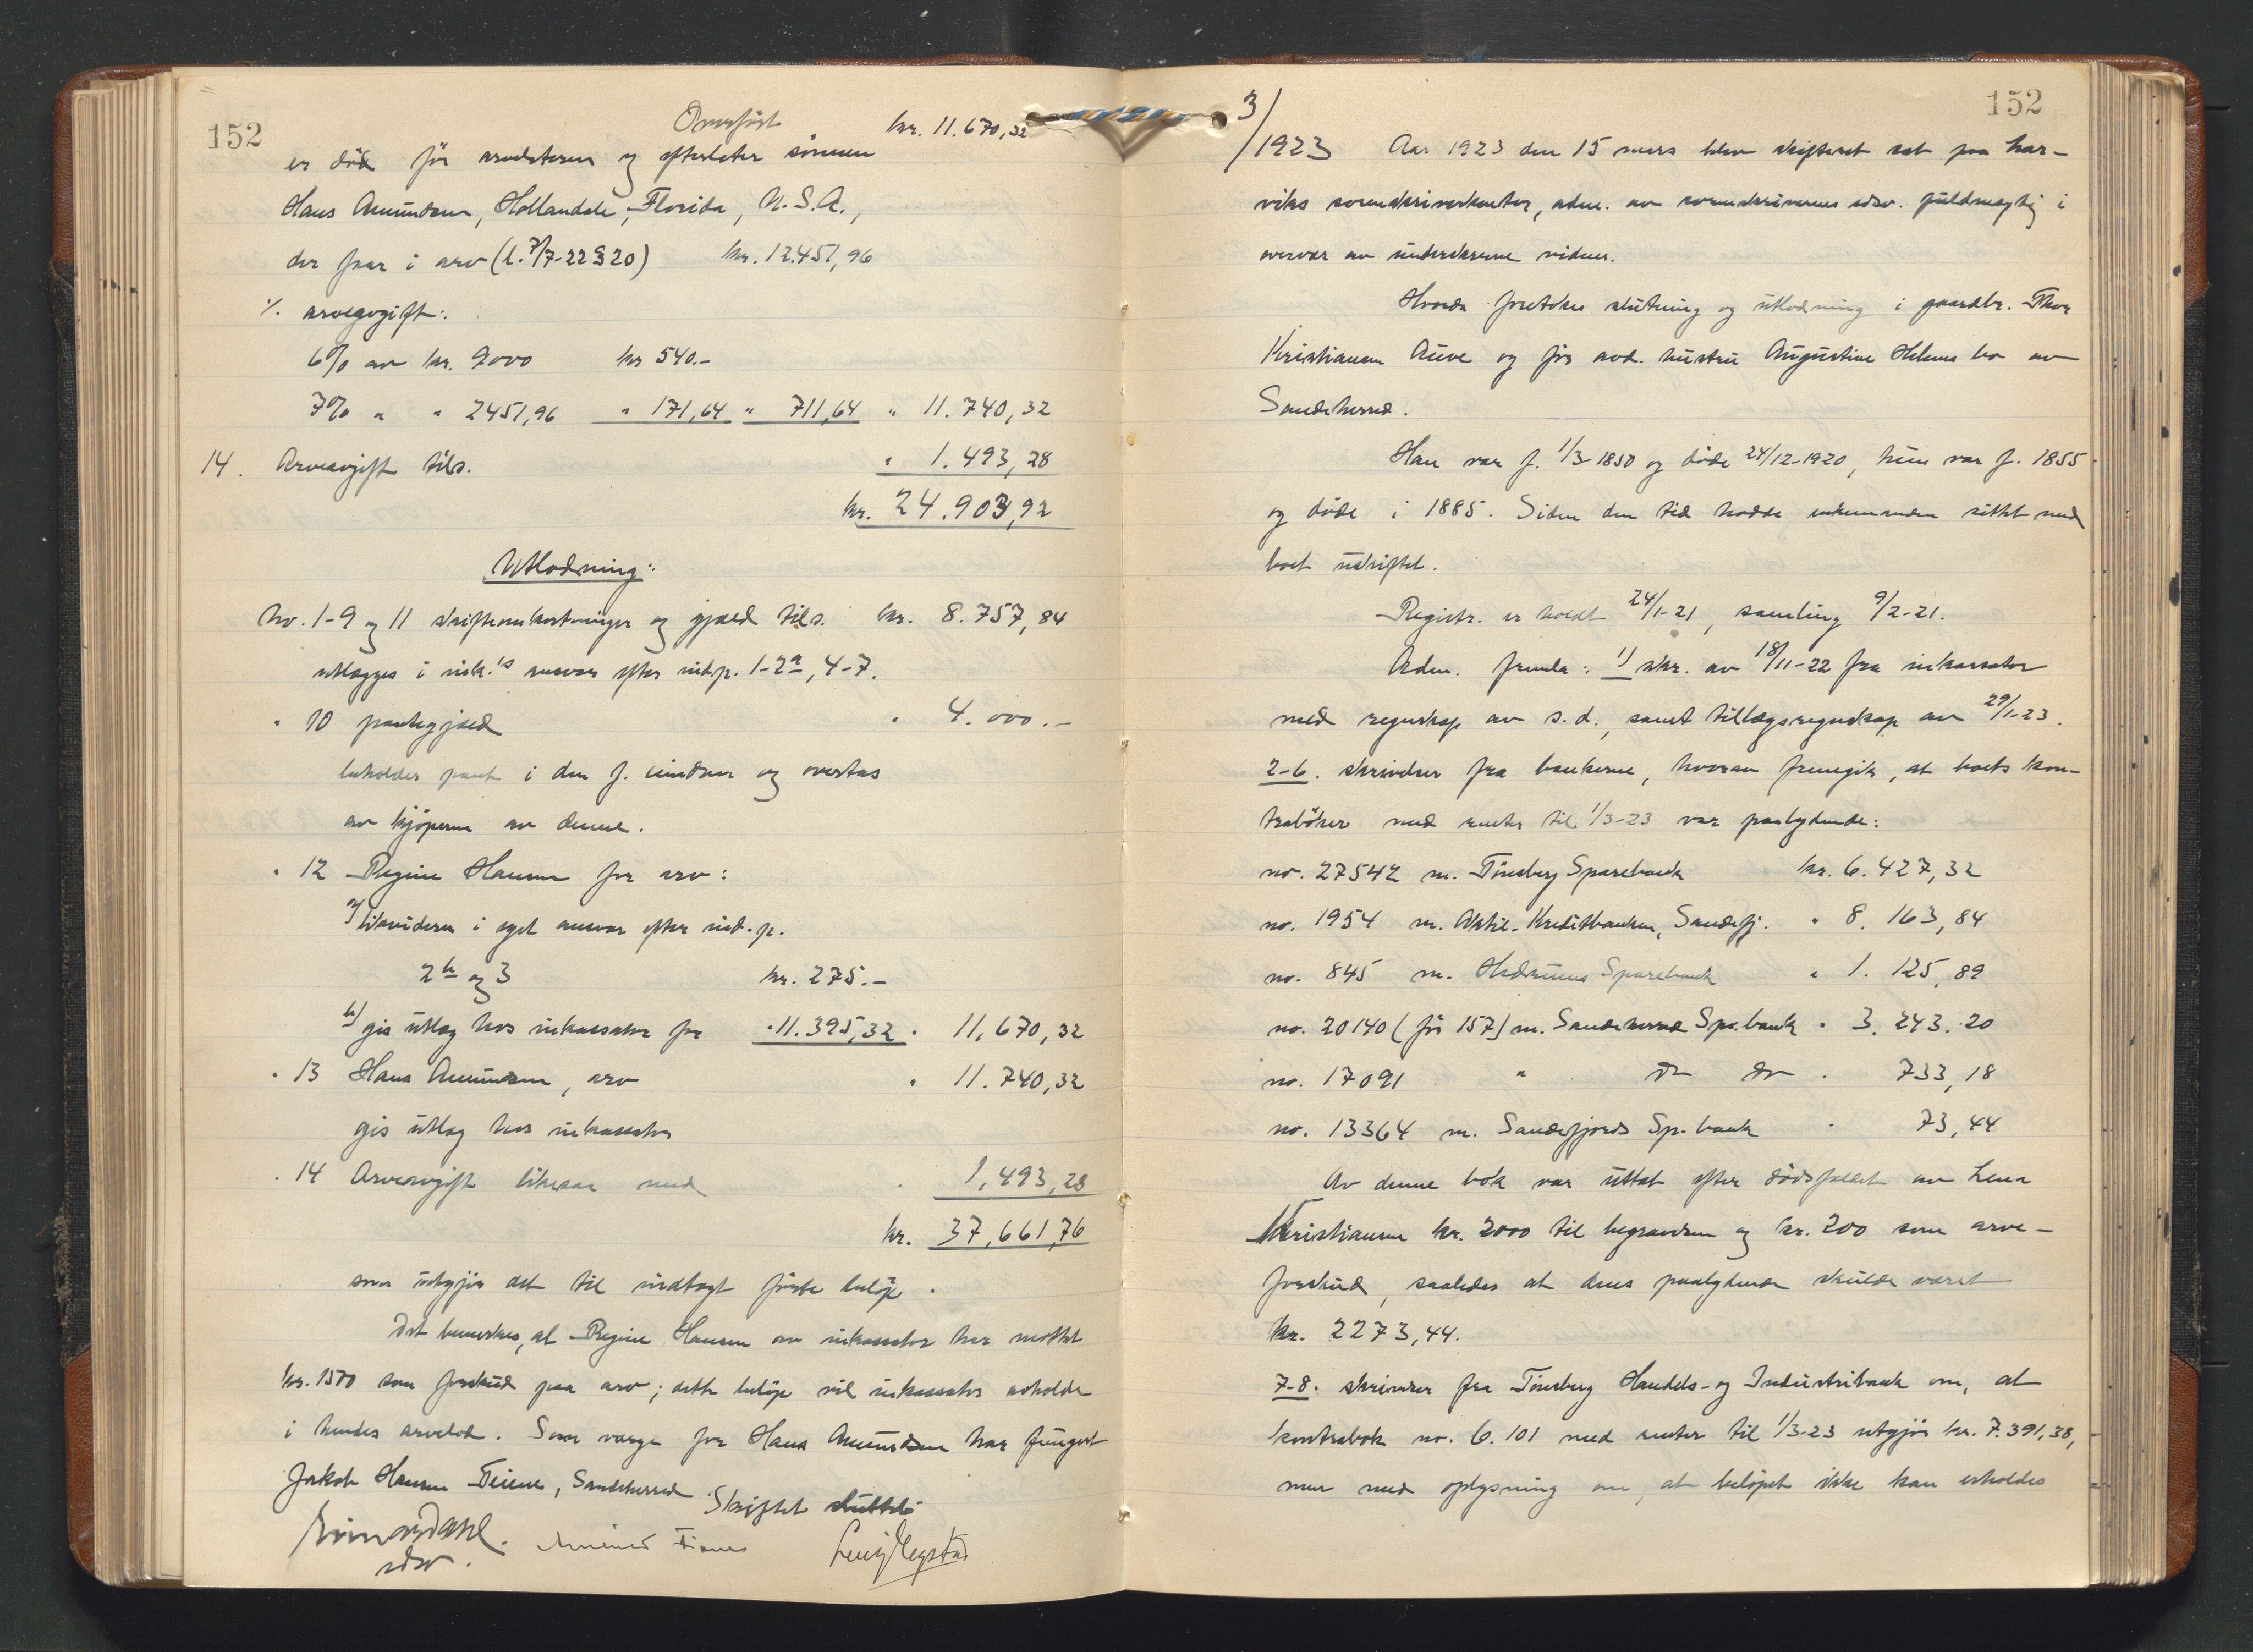 152
Overført kr. 11.670,32
er död för arvelateren og efterlater sönnen
Hans Amundsen, Hollandale, Florida, U.S.A.,
der faar i arv (l. 7/7-22 § 20) kr. 12.451,96
÷ arveavgift:
6% av kr. 9000 kr 540.-
7% " " 2451,96 " 171,64 " 711,64 " 11.740,32
14. Arveavgift tils. " 1.493,28
kr. 24.903,92
Utlodning:
No. 1-9 og 11 skifteomkostninger og gjæld tils. kr. 8.757,84
utlægges i ink.'s ansvar efter ind.p. 1-2a, 4-7.
" 10 pantegjæld " 4.000.-
beholder pant i den f. eiendom og overtas
av kjöperne av denne.
" 12 Regine Hansen for arv:
a) likviderer i eget ansvar efter ind.p.
2b og 3 kr. 275.-
b) gis utlæg hos inkassator for " 11.395,32 " 11,670,32
" 13 Hans Amundsen, arv " 11.740,32
gis utlæg hos inkassator
" 14 Arveavgift likesaa med " 1,493,28
kr. 37,661,76
som utgjör det til indtægt förte belöp.
Det bemerkes, at Regine Hansen av inkassator har mottat
kr. 1500 som forskud paa arv; dette belöp vil inkassator avholde
i hendes arvelod. Som verge for Hans Amundsen har fungert
Jakob Hansen Feiene, Sandeherred Skiftet sluttet
edsv.
152
3/1923 Aar 1923 den 15 mars blev skifteret sat paa Lar-
viks sorenskriverkontor, adm. av sorenskriverens edsv. fuldmægtig i
overvær av underskrevne vidner.
Hvorda foretokes slutning og utlodning i gaardbr. Thor
Kristiansen Auve og för avd. hustru Augustine Helenes bo av
Sandeherred.
Han var f. 1/3-1850 og döde 24/12-1920, hun var f. 1855
og döde i 1885. Siden den tid hadde enkemanden sittet med
boet uskiftet.
Registr. er holdt 24/1-21, samling 9/2-21.
Adm. fremla: 1) skr. av 18/11-22 fra inkassator
med regnskap av s.d., samt tillægsregnskap av 29/1-23.
2-6. skrivelser fra bankerne, hvorav fremgik, at boets kon-
traböker med renter til 1/3-23 var paalydende:
no. 27542 m. Tönsberg Sparebank kr. 6.427,32
no. 1954 m. Aktie-Kreditbanken, Sandefj. " 8.163,84
no. 845 m. Hedrums Sparebank " 1.125,89
no. 20140 (för 157) m. Sandeherred Spr.bank " 3.243.20
no. 17091 " do do " 733,18
no. 13364 m. Sandefjords Sp.bank " 73,44
Av denne bok var uttat efter dödsfaldet av Lena
Kristiansen kr. 2000 til begravelsen og kr. 200 som arve-
forskud, saaledes at dens paalydende skulde været
kr. 2273,44.
7-8. skrivelser fra Tönsberg Handels- og Industribank om, at
kontrabok no. 6.101 med renter til 1/3-23 utgjör kr. 7.391,38,
men med oplysning om, at belöpet ikke kan erholdes